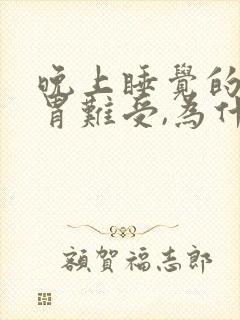 晚上睡覺的
胃難受,為什
額賀福志郎